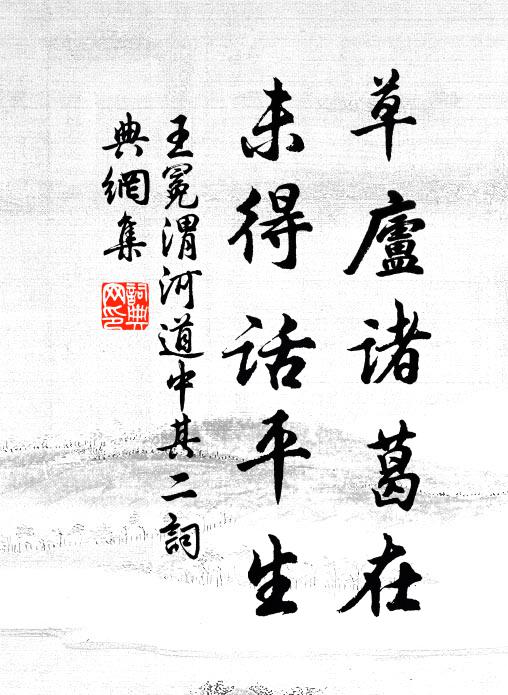 草廬诸葛在
未得话平生
王冕渭河道中其二詞
典網集
詞典网印